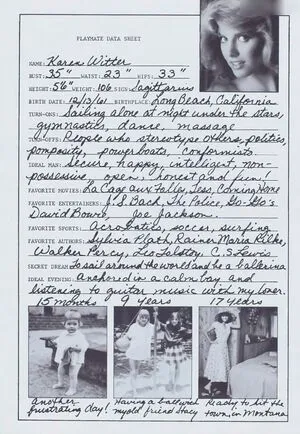 PLAYMATE DATA SHEET
NAME: Karen Witter
BUST: 35" WAIST: 23" HIPS: 33"
HEIGHT: 5'6" WEIGHT: 106 SIGN: Sagittarius
BIRTH DATE: 12/13/61 BIRTHPLACE: Long Beach, California
TURN-ONS: Sailing alone at night under the stars,
gymnastics, dance, massage
TURN-OFFS: People who stereotype others, politics,
pomposity, powerboats, conformists
IDEAL MAN: Secure, happy, intelligent, non-
possessive, open, honest and fun!
FAVORITE MOVIES: La Cage aux Folles, Tess, Coming Home
FAVORITE ENTERTAINERS: J. S. Bach, The Police, Go-Go's
David Bowie, Joe Jackson.
FAVORITE SPORTS: Acrobatics, soccer, surfing
FAVORITE AUTHORS: Sylvia Plath, Rainer Maria Rilke,
Walker Percy, Leo Tolstoy, C. S. Lewis
SECRET DREAM: To sail around the world and be a ballerina
IDEAL EVENING: Anchored in a calm bay and
listening to guitar music with my lover.
15 months 9 years 17 years
Another frustrating day!
Having a ball with my old friend Stacy
Ready to hit the town, in Montana